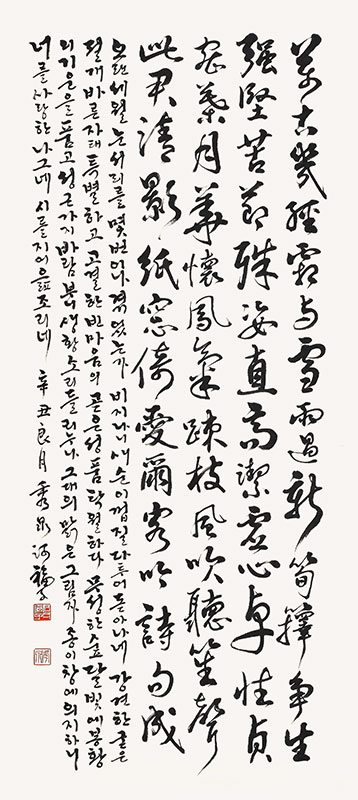 萬古幾經霜与雪雨過新筍籜爭生
强堅苦節殊姿直高潔虛心卓性貞
密葉月華懷鳳氣疎枝風吹聽笙聲
此君清影紙窓倚愛爾客吟詩句成
오랜 세월 눈서리를 몇 번이나 겪었는가 비 지나니 새 순이 껍질 다투어 돋아나네 강견한 굳은
절개 바른 자태 특별하고 고결한 빈 마음의 곧은 성품 탁월하다 무성한 숲 달빛에 봉황
의 기운을 품고 성근 가지 바람 불어 생황 소리 들리누나 그대의 맑은 그림자 종이창에 의지하니
너를 사랑한 나그네 시를 지어 읊조리네 辛丑良月 秀泉